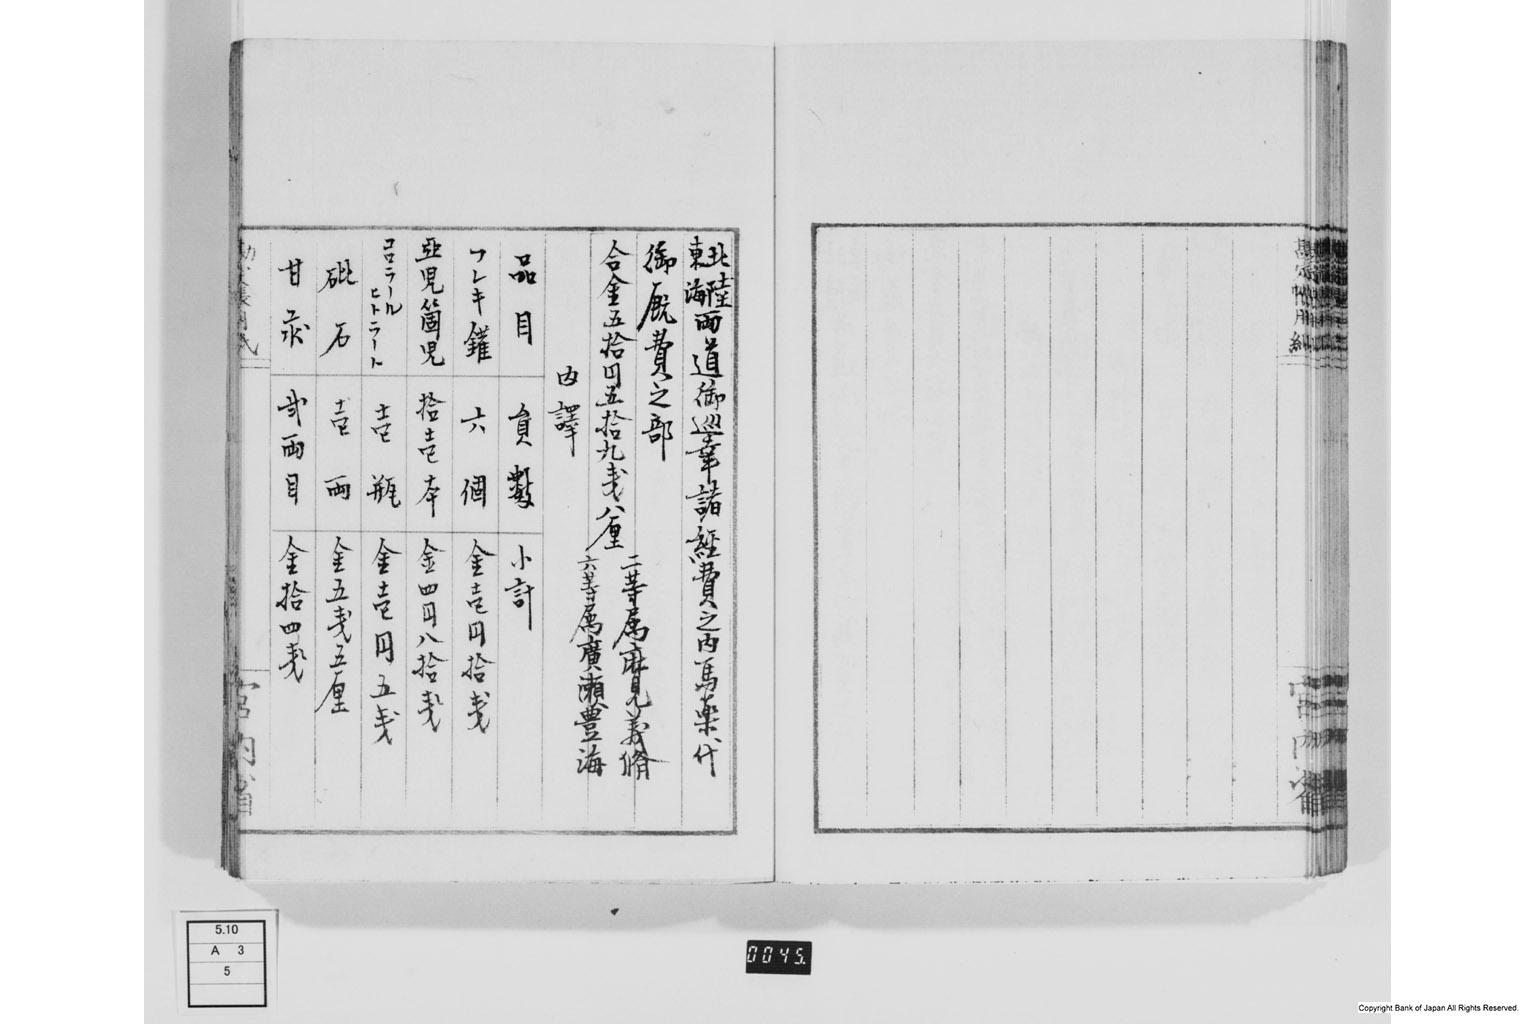 北陸
東海両道御巡幸諸経費之内馬薬代
御厩費之部
合金五拾円五拾九銭八厘
二等属麻見義脩
六等属廣瀬豊海
内譯
品目 員數 小計
フレキ鑵 六個 金壱円拾銭
亞児箇児 拾壱本 金四円八拾銭
コロラールヒトラート 壱瓶 金壱円五銭
砒石 壱両 金五銭五厘
甘汞 弐両目 金拾四銭
宮内省
5.10
A 3
5
0045.
Copyright Bank of Japan All Rights Reserved.